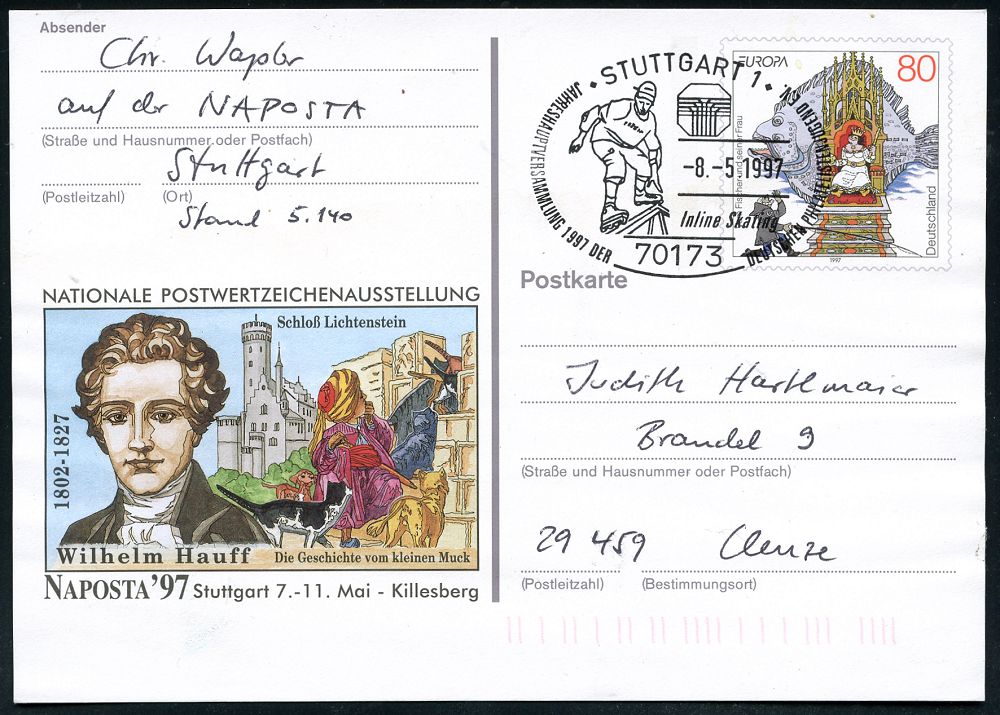 Absender
Chr. Wapler
auf der NAPOSTA
(Straße und Hausnummer oder Postfach)
Stuttgart
(Postleitzahl) (Ort)
Stand 5.140
NATIONALE POSTWERTZEICHENAUSSTELLUNG
Schloß Lichtenstein
1802-1827
Wilhelm Hauff
Die Geschichte vom kleinen Muck
NAPOSTA '97 Stuttgart 7.-11. Mai - Killesberg
STUTTGART 1
JAHRESHAUPTVERSAMMLUNG 1997 DER DEUTSCHEN PHILATELISTENJUGEND E.V.
-8.-5.1997
Inline Skating
70173
EUROPA
80
Fischer und seine Frau
Deutschland
1997
Postkarte
Judith Hartlmaier
Brandel 9
(Straße und Hausnummer oder Postfach)
29 459 Clenze
(Postleitzahl) (Bestimmungsort)